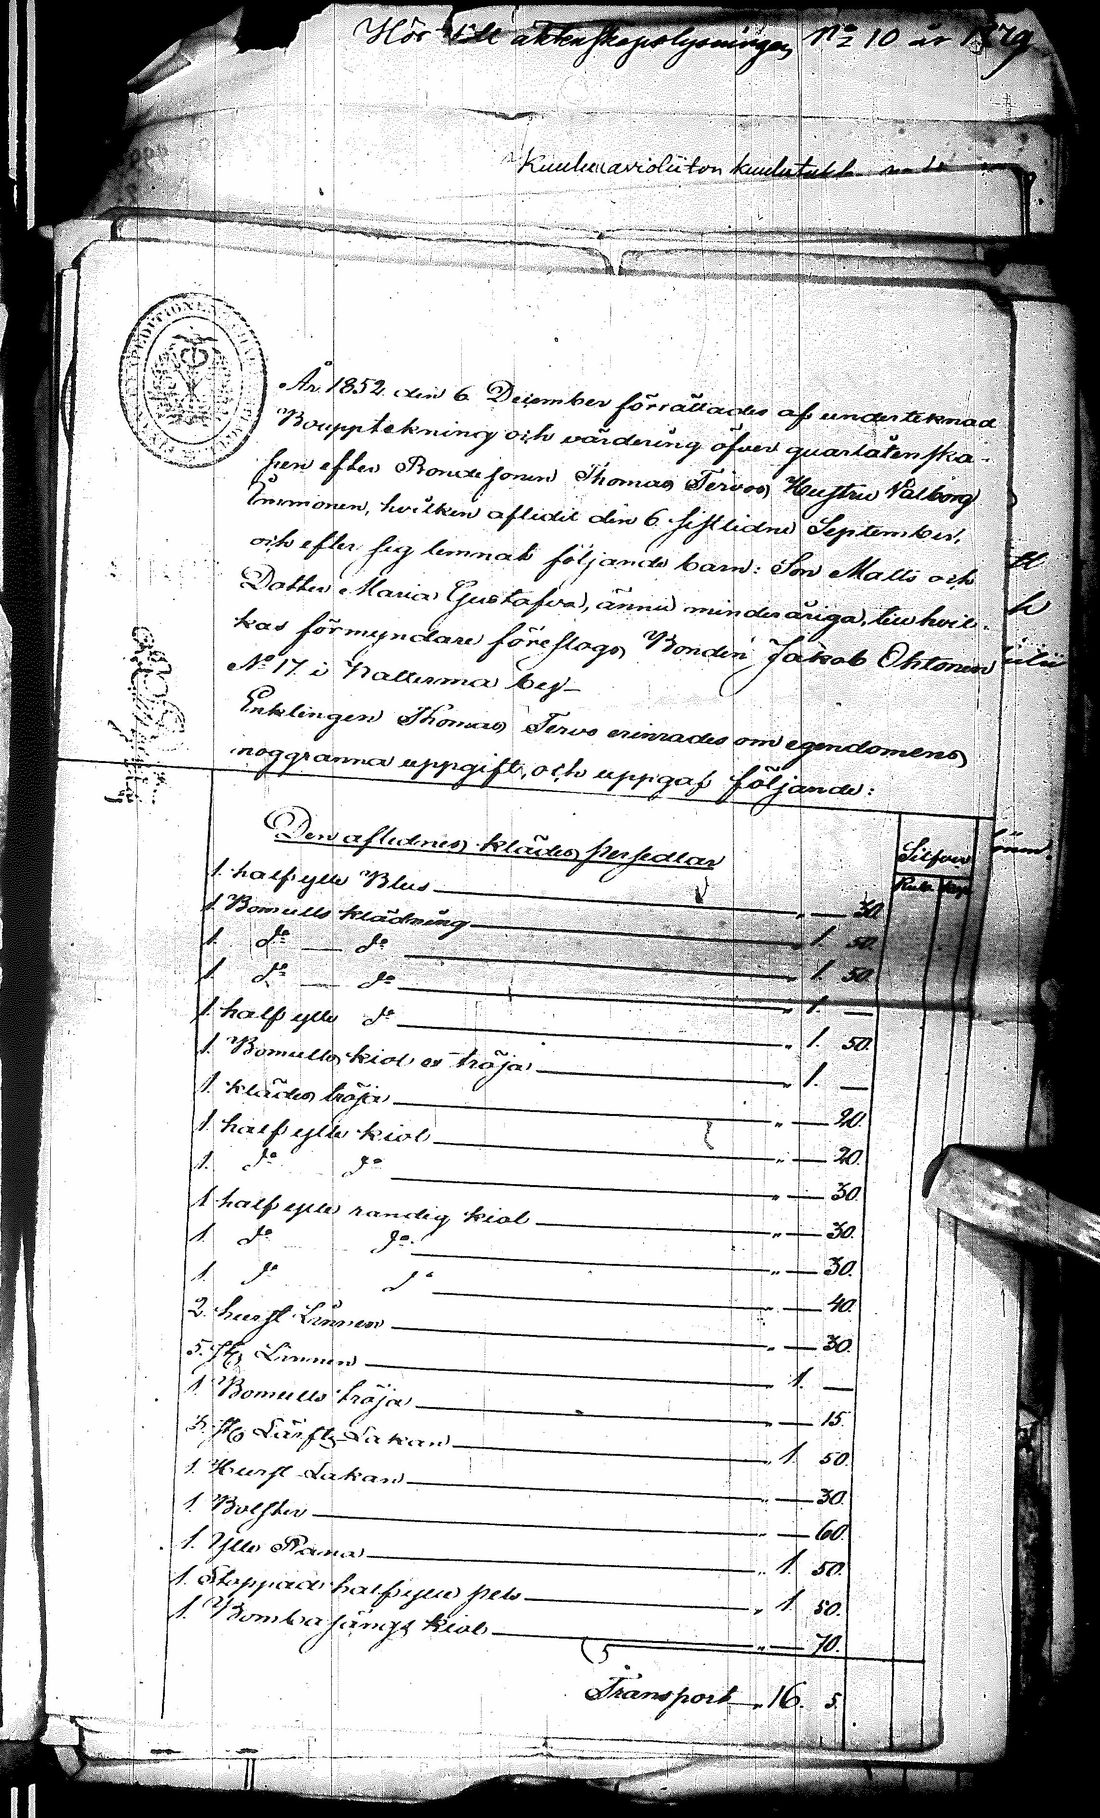 Hör till äktenskapslysningen No 10 år 1879
Kuuluu avioliiton kuulutukk.
År 1852 den 6 December förrättades af undertecknad
Bouppteckning och värdering öfver quarlåtenska-
pen efter Bondesonen Thomas Tervos Hustru Valborg
Immonen, hvilken aflidit den 6 sistlidne September,
och efter sig lemnat följande barn: Son Matts och
Dotter Maria Gustafva, ännu minderåriga, till hvil-
kas förmyndare föreslogs Bonden Jakob Ohtonen
No 17 i Kallerma by_
Enklingen Thomas Tervo erinrades om egendomens
noggranna uppgift, och uppgaf följande:
Den aflidnes klädes persedlar
Silfver
Rub. Kop.
1. half ylle Blus „ — 30.
1. Bomulls klädning „ 1. 50.
1. do — do „ 1. 50.
1. do — do „ 1. —
1. half ylle do „ 1. 50.
1. Bomulls kiol o tröja „ 1. —
1. klädes tröja „ — 20.
1. half ylle kiol „ — 20.
1. do do „ — 30.
1 half ylle randig kiol „ — 30.
1. do do „ — 30.
1. do do „ — 40.
2. hurst Linnen „ — 30.
5. st. Linnen „ 1. —
1. Bomulls tröja „ — 15.
3. st. Lärfts Lakan „ 1. 50.
1. Hurst Lakan „ — 30.
1. Bolster „ — 60.
1. Ylle Rana „ 1. 50.
1. Stoppad half ylle pels „ 1. 50.
1. Bombasängs kiol „ — 70.
Transport „ 16. 5.